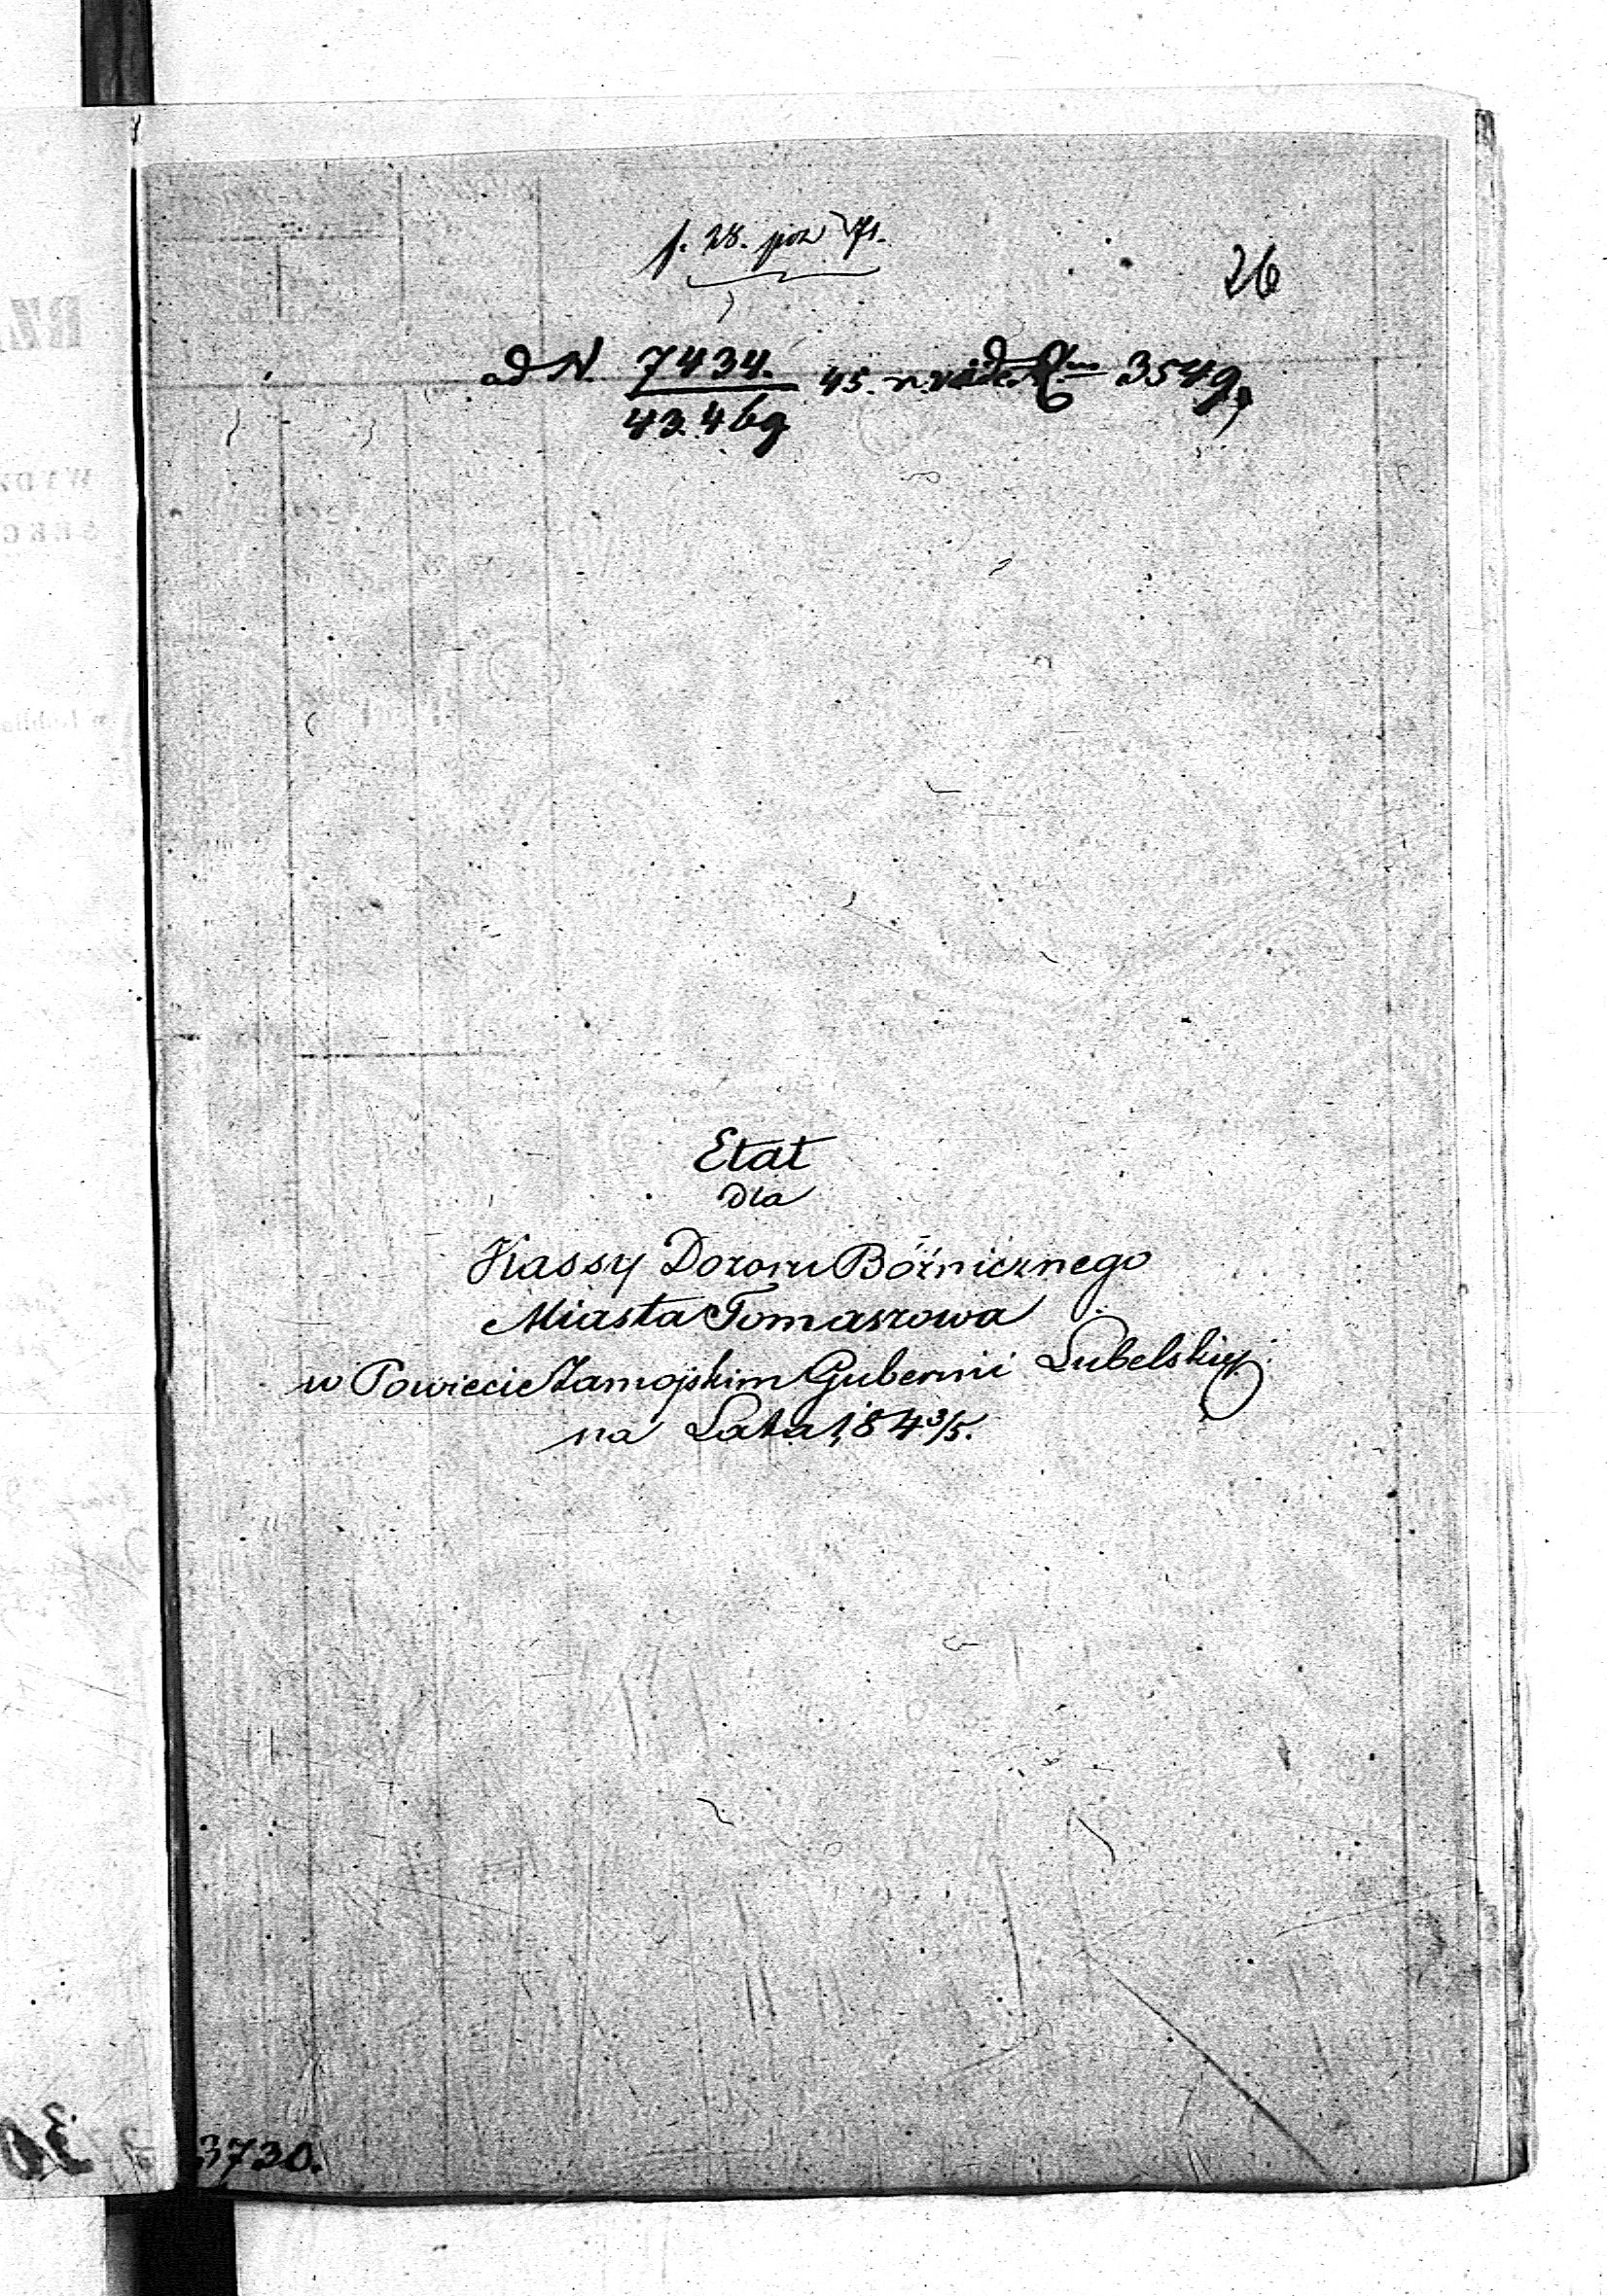 f. 28. poz 71.
26
ad N. 7434. 45. 3549,
43.469
Etat
Dla
Kassy Dozoru Bóżnicznego
Miasta Tomaszowa
w Powiecie Zamojskim Gubernii Lubelskiey.
na Lata 184 3/5.
3730.